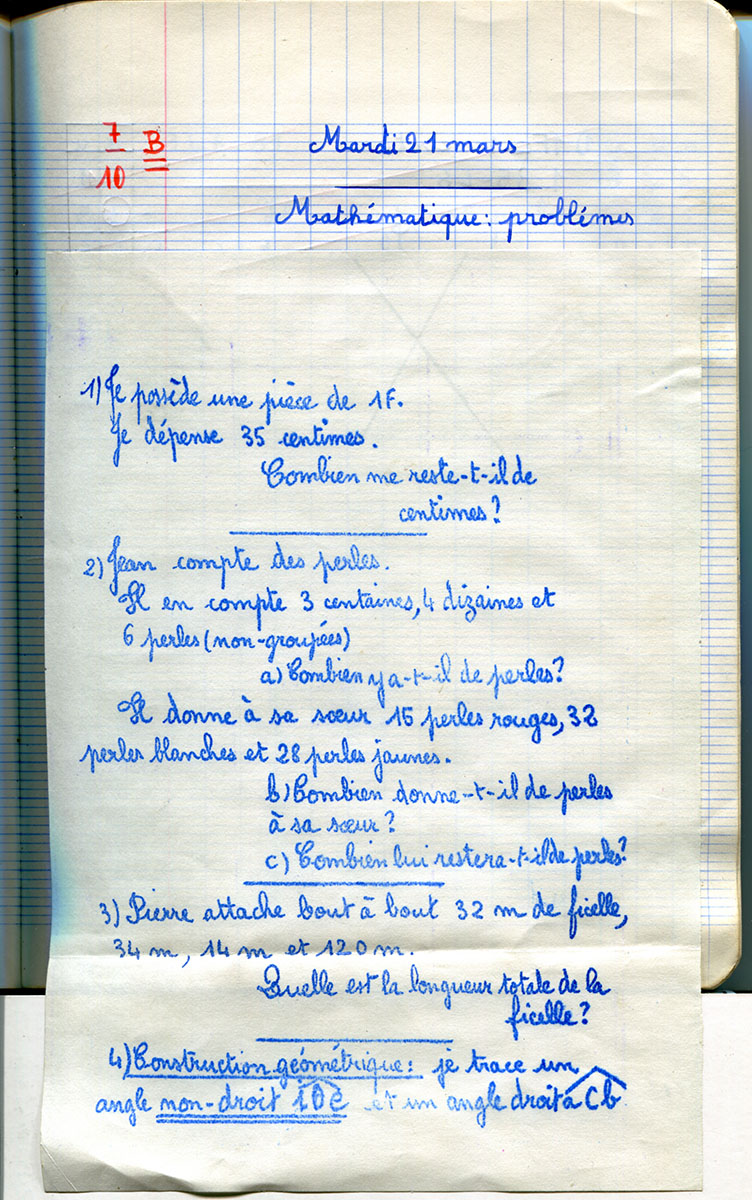 7
10
B
Mardi 21 mars
Mathématique : problèmes
1) Je possède une pièce de 1F.
Je dépense 35 centimes.
Combien me reste-t-il de
centimes ?
2) Jean compte des perles.
Il en compte 3 centaines, 4 dizaines et
6 perles (non-groupées)
a) Combien y a-t-il de perles ?
Il donne à sa sœur 15 perles rouges, 32
perles blanches et 28 perles jaunes.
b) Combien donne-t-il de perles
à sa sœur ?
c) Combien lui restera-t-il de perles ?
3) Pierre attache bout à bout 32 m de ficelle,
34 m, 14 m et 120 m.
Quelle est la longueur totale de la
ficelle ?
4) Construction géométrique : je trace un
angle non-droit et un angle droit a C b